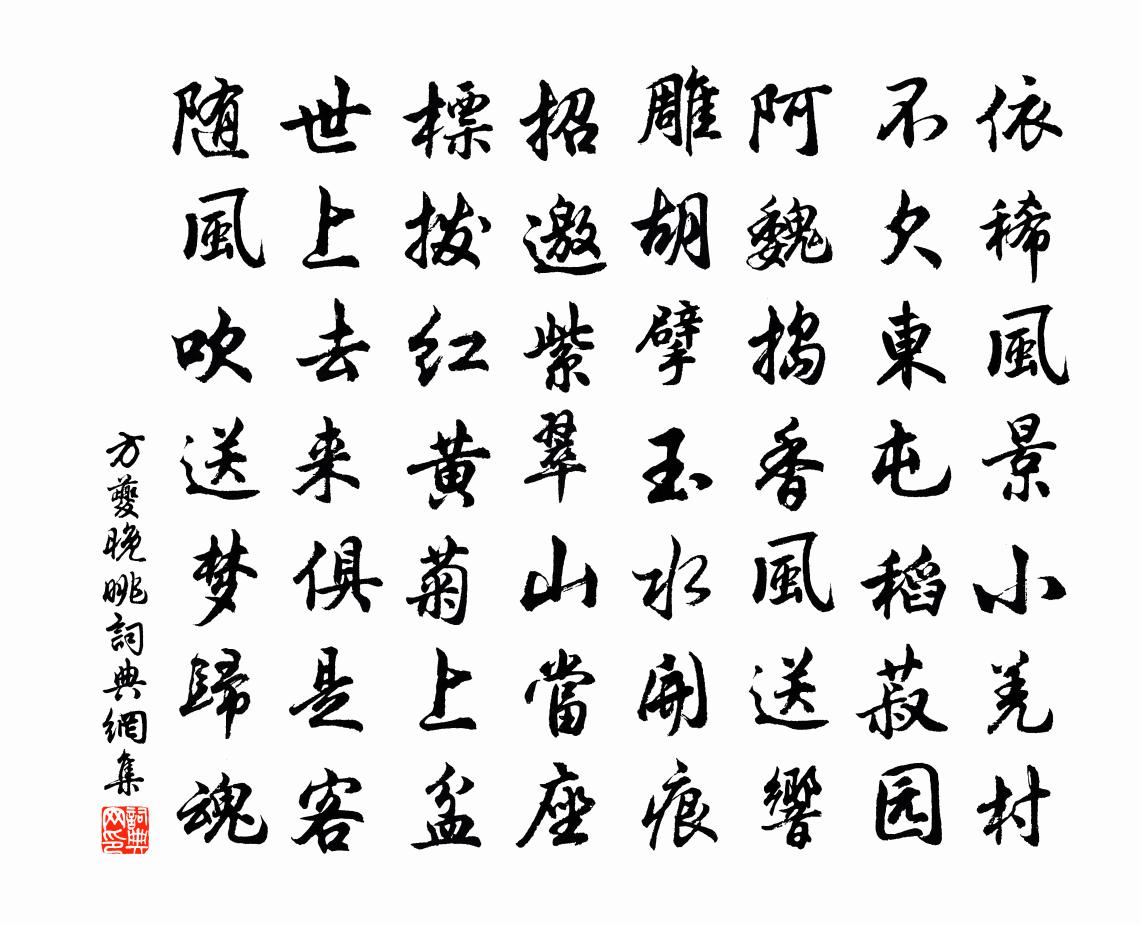 依稀風景小羌村
不欠東屯稻菽园
阿魏搗香風送響
雕胡擘玉水開痕
招邀紫翠山當座
標拨红黄菊上盆
世上去来俱是客
随風吹送梦歸魂
方夔晚眺詞典網集
詞典网印